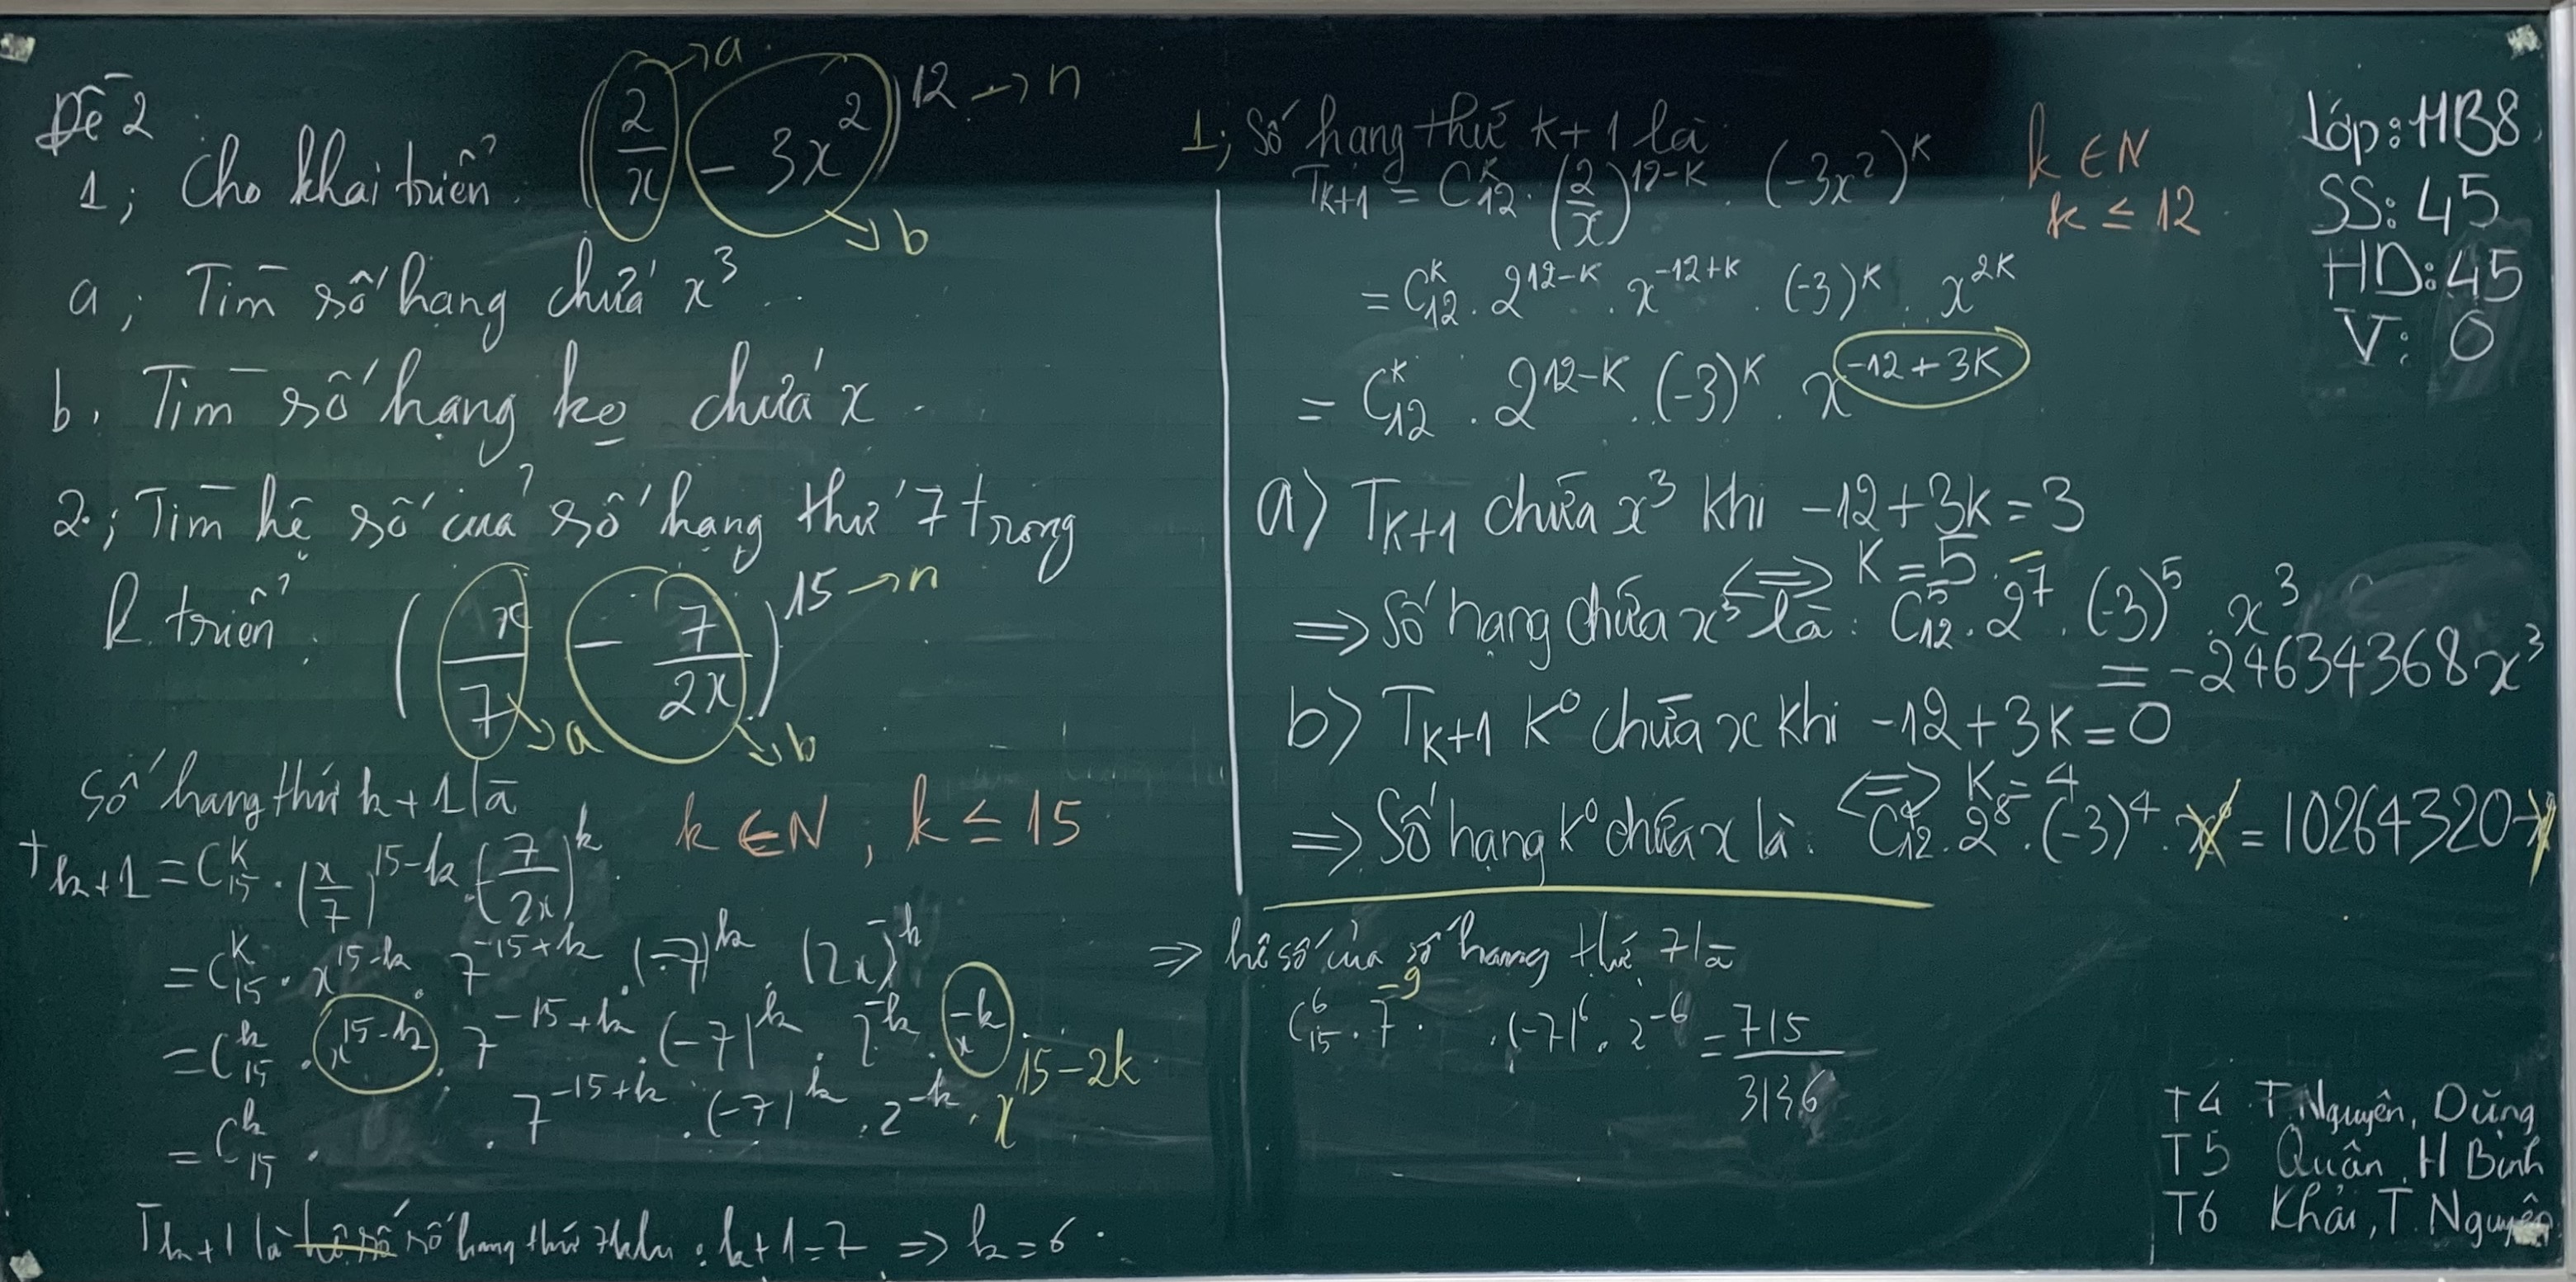 Đề 2
1; Cho khai triển (2/x - 3x²)¹² → n
→ a
→ b
a; Tìm số hạng chứa x³
b. Tìm số hạng ko chứa x.
2; Tìm hệ số của số hạng thứ 7 trong
k. triển: (x/7 - 7/2x)¹⁵ → n
→ a
→ b
Số hạng thứ k+1 là
k ∈ N, k ≤ 15
T_{k+1} = C_{15}^k . (x/7)^{15-k} . (-7/2x)^k
= C_{15}^k . x^{15-k} . 7^{-15+k} . (-7)^k . (2x)^{-k}
= C_{15}^k . x^{15-k} . 7^{-15+k} . (-7)^k . 2^{-k} . x^{-k}
= C_{15}^k . 7^{-15+k} . (-7)^k . 2^{-k} . x^{15-2k}
T_{k+1} là hệ số số hạng thứ 7 khi : k+1=7 ⇒ k=6.
1; Số hạng thứ k+1 là
T_{k+1} = C_{12}^k . (2/x)^{12-k} . (-3x²)^k
k ∈ N
k ≤ 12
= C_{12}^k . 2^{12-k} . x^{-12+k} . (-3)^k . x^{2k}
= C_{12}^k . 2^{12-k} . (-3)^k . x^{-12+3k}
a) T_{k+1} chứa x³ khi -12+3k=3
⇔ k=5
⇒ Số hạng chứa x³ là: C_{12}^5 . 2^7 . (-3)^5 . x³
= -24634368x³
b) T_{k+1} k° chứa x khi -12+3k=0
⇔ k=4
⇒ Số hạng k° chứa x là: C_{12}^4 . 2^8 . (-3)^4 . x° = 10264320
⇒ hệ số của số hạng thứ 7 là
C_{15}^6 . 7^{-9} . (-7)^6 . 2^{-6} = 715/3136
Lớp: 11B8
SS: 45
HD: 45
V: 0
T4 T Nguyên, Dũng
T5 Quân, H Bình
T6 Khải, T. Nguyên